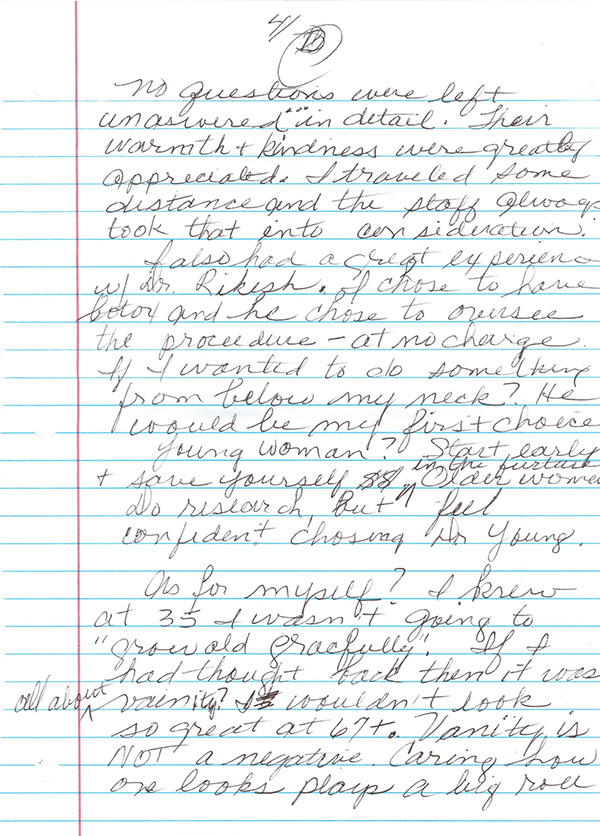 4/
No questions were left
unaswered "in detail. Their
warmth + kindness were greatly
appreciated. I traveled some
distance and the staff always
took that into consideration.
I also had a great experienc
w/ Dr. Rikesh. I chose to have
botox and he chose to oversee
the proceedure - at no charge.
If I wanted to do something
from below my neck? He
would be my first choice
Young woman? Start early
+ save yourself $$ in the furture. Older women
Do research, but feel
confident chosing Dr Young.
As for myself? I knew
at 35 I wasn't going to
"grow old gracfully". If I
had thought back then it was
all about vainity? I wouldn't look
so great at 67+. Vanity is
NOT a negative. Caring how
one looks plays a big roll